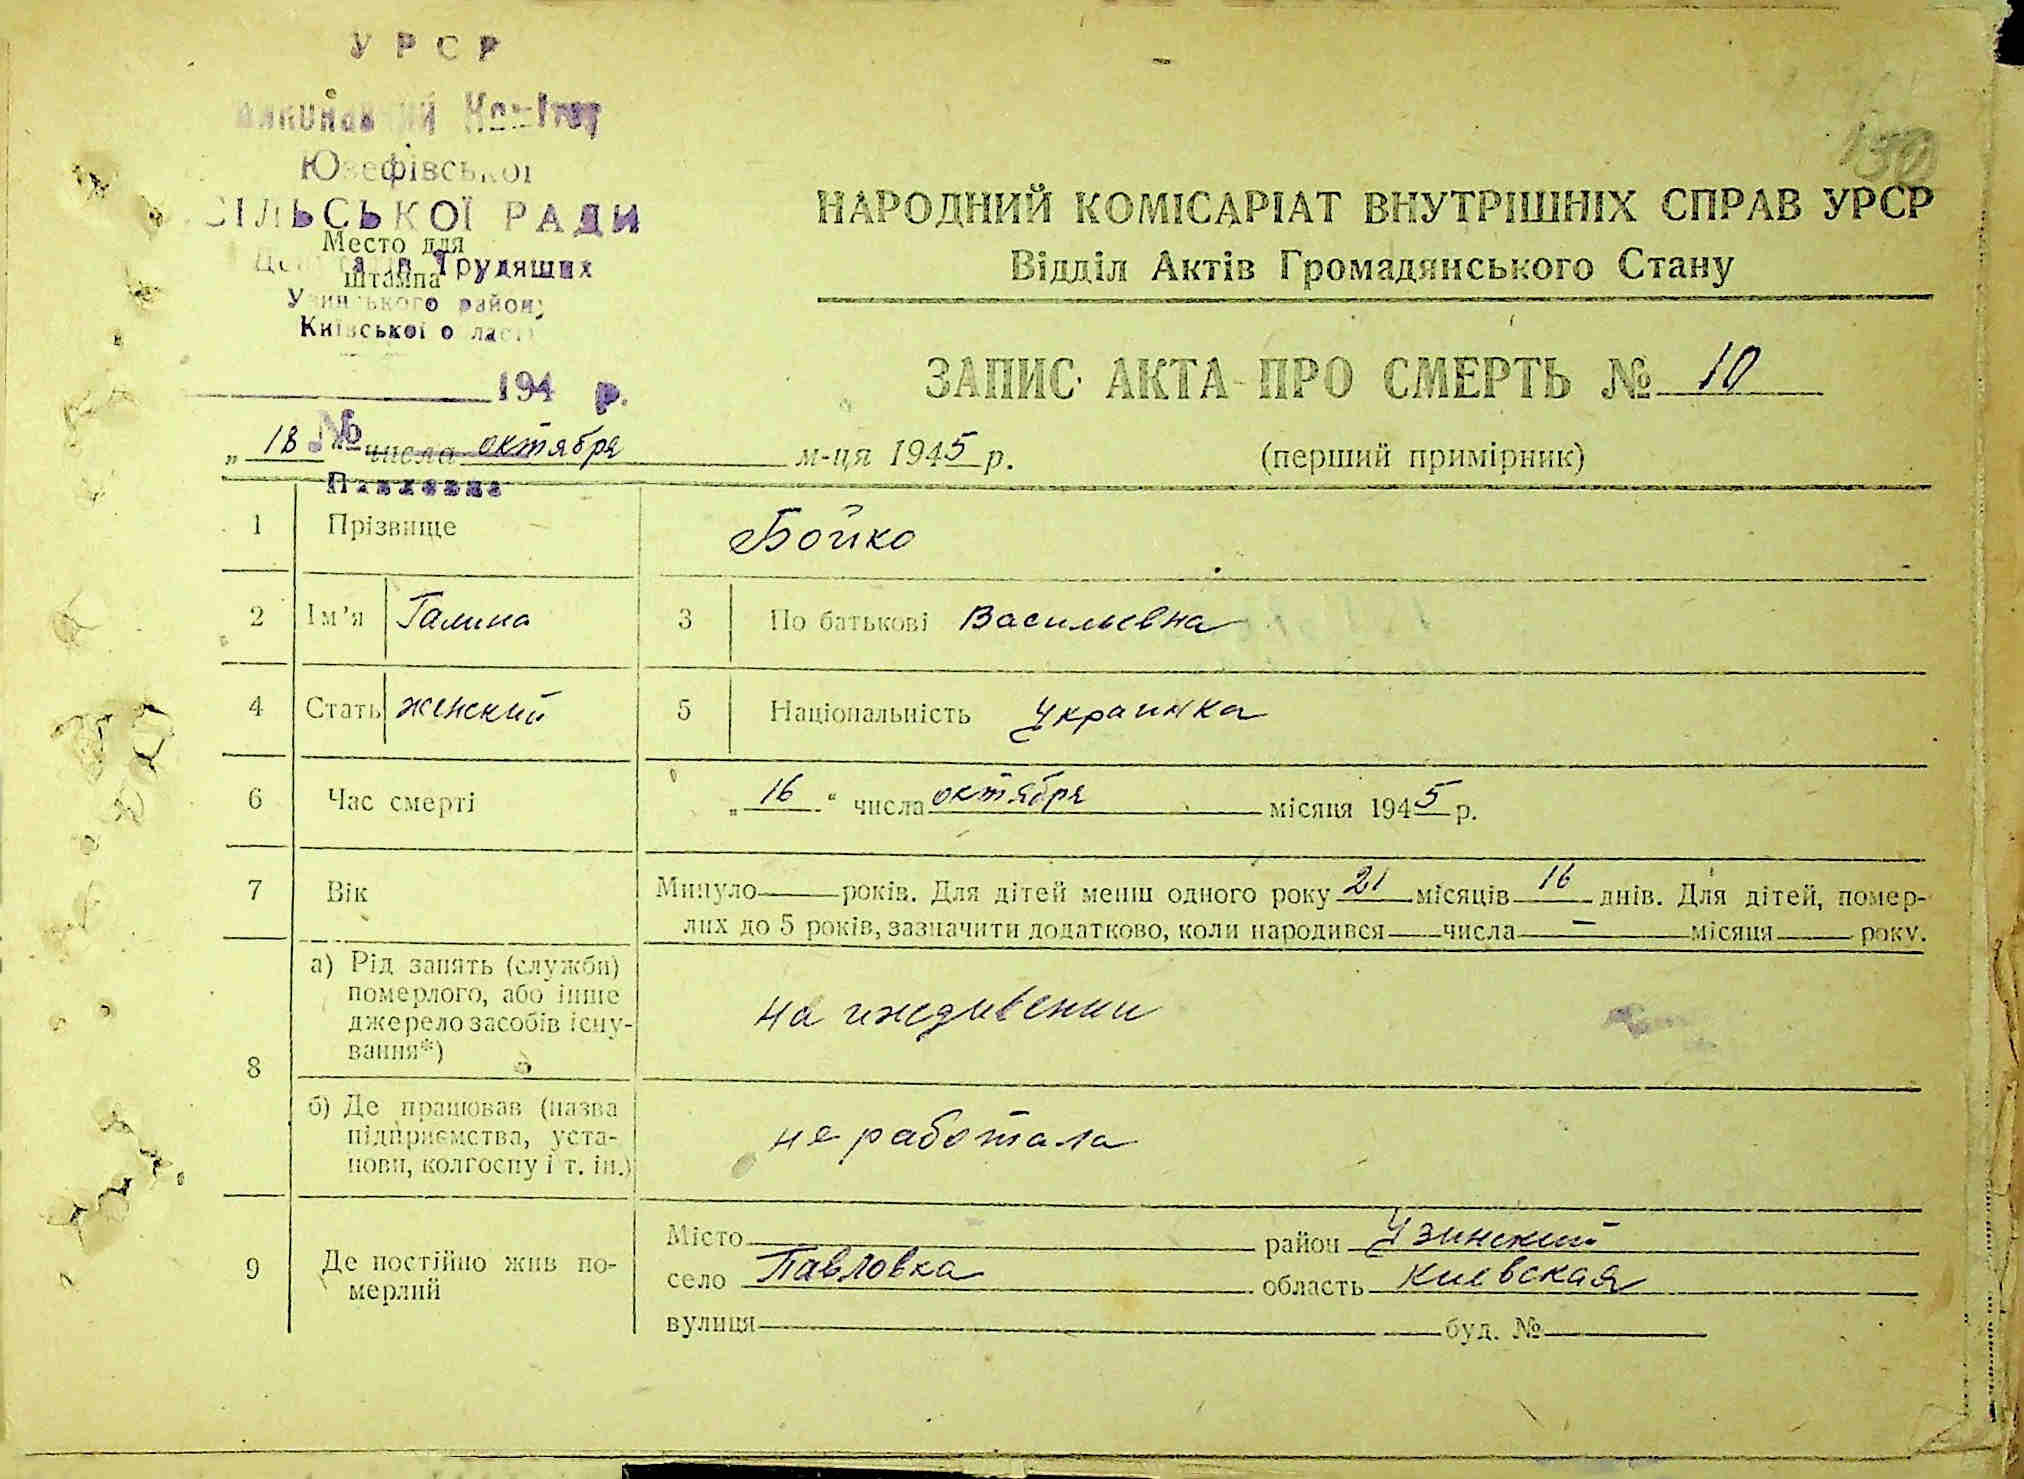 УРСР
Виконавчий Комітет
Юзефівської
СІЛЬСЬКОЇ РАДИ
Место для
штампа
Депутатів Трудящих
Узинського району
Київської області
194 р.
№
150
НАРОДНИЙ КОМІСАРІАТ ВНУТРІШНІХ СПРАВ УРСР
Відділ Актів Громадянського Стану
ЗАПИС АКТА ПРО СМЕРТЬ № 10
„ 18 " числа октября м-ця 1945 р. (перший примірник)
1 Прізвище Бойко
2 Ім'я Галина 3 По батькові Васильевна
4 Стать женский 5 Національність Украинка
6 Час смерті „ 16 " числа октября місяця 1945 р.
7 Вік Минуло років. Для дітей менш одного року 21 місяців 16 днів. Для дітей, помер-
лих до 5 років, зазначити додатково, коли народився числа — місяця року.
8 а) Рід занять (служби)
померлого, або інше
джерело засобів існу-
вання*)
на иждивении
б) Де працював (назва
підприємства, уста-
нови, колгоспу і т. ін.)
не работала
9 Де постійно жив по-
мерлий
Місто район Узинский
село Павловка область Киевская
вулиця буд. №